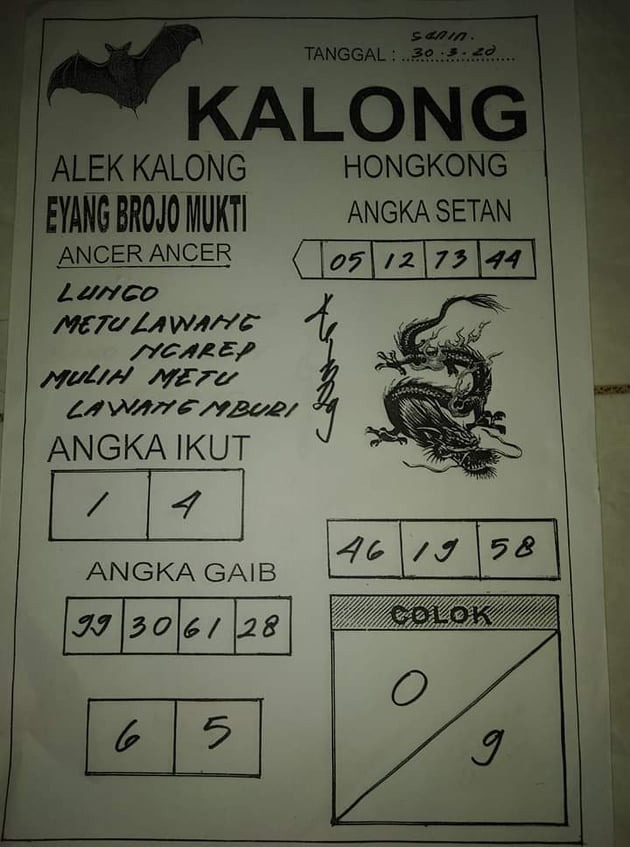 Senin.
TANGGAL : 30-3-20
KALONG
ALEK KALONG
HONGKONG
EYANG BROJO MUKTI
ANGKA SETAN
ANCER ANCER
05 12 73 44
LUNGO
METU LAWANG
NGAREP
MULIH METU
LAWANG MBURI
ANGKA IKUT
1 4
46 19 58
ANGKA GAIB
99 30 61 28
COLOK
0
9
6 5